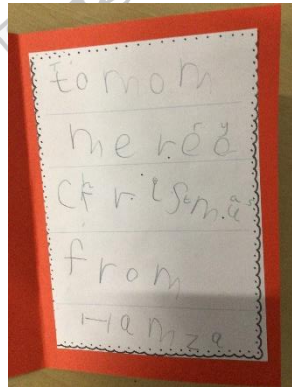 to mom
mereo
Christmas
from
Hamza